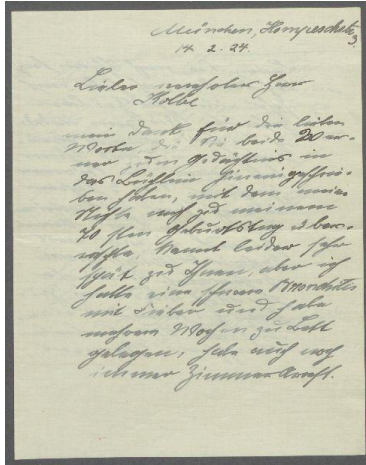 München, Hompeschstr 3
14. 2. 24.
Lieber verehrter Herr
Kolbe
mein Dank für die lieben
Worte, die Sie beide
zum Gedächtnis in
das Büchlein hineingeschrie-
ben haben, mit dem meine
Nichte mich zu meinem
70 sten Geburtstag über-
raschte, kommt leider sehr
spät zu Ihnen, aber ich
hatte eine schwere Bronchitis
mit Fieber und habe
mehrere Wochen zu Bett
gelegen, habe auch noch
immer Zimmer Arrest.